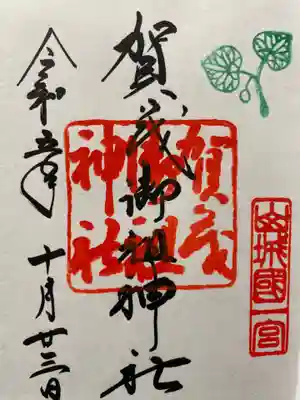 山城國一宮
賀茂御祖神社
賀茂
御祖
神社
令和五年
十月廿三日